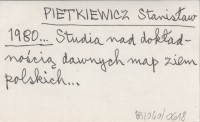 PIETKIEWICZ Stanisław
1980... Studia nad dokład-
nością dawnych map ziem
polskich...